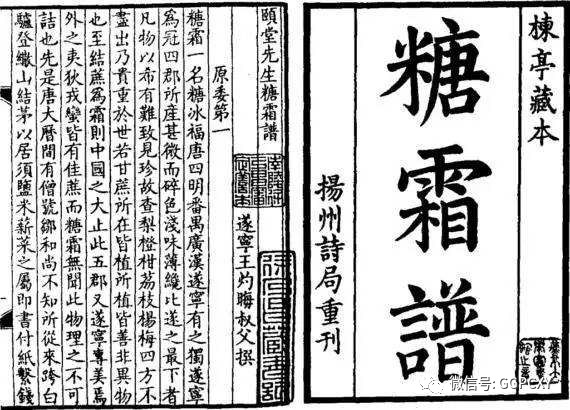 楝亭藏本
糖霜譜
揚州詩局重刊
頤堂先生糖霜譜
遂寧王灼晦叔父撰
原委第一
糖霜一名糖冰福唐四明番禺廣漢遂寧有之獨遂寧
爲冠四郡所產甚微而碎色淺味薄纔比遂之最下者
凡物以希有難致見珍故查梨橙柑荔枝楊梅四方不
盡出乃貴重於世若甘蔗所在皆植所植皆善非異物
也至結蔗爲霜則中國之大止此五郡又遂寧專美焉
外之夷狄戎蠻皆有佳蔗而糖霜無聞此物理之不可
詰也先是唐大曆間有僧號鄒和尚不知所從來跨白
驢登繖山結茅以居須鹽米薪菜之屬即書付紙繫錢
微信号: GGPCXY